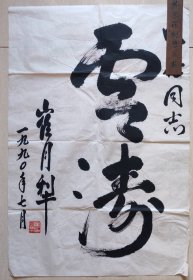 同志
雲濤
崔月犁
一九九〇年七月